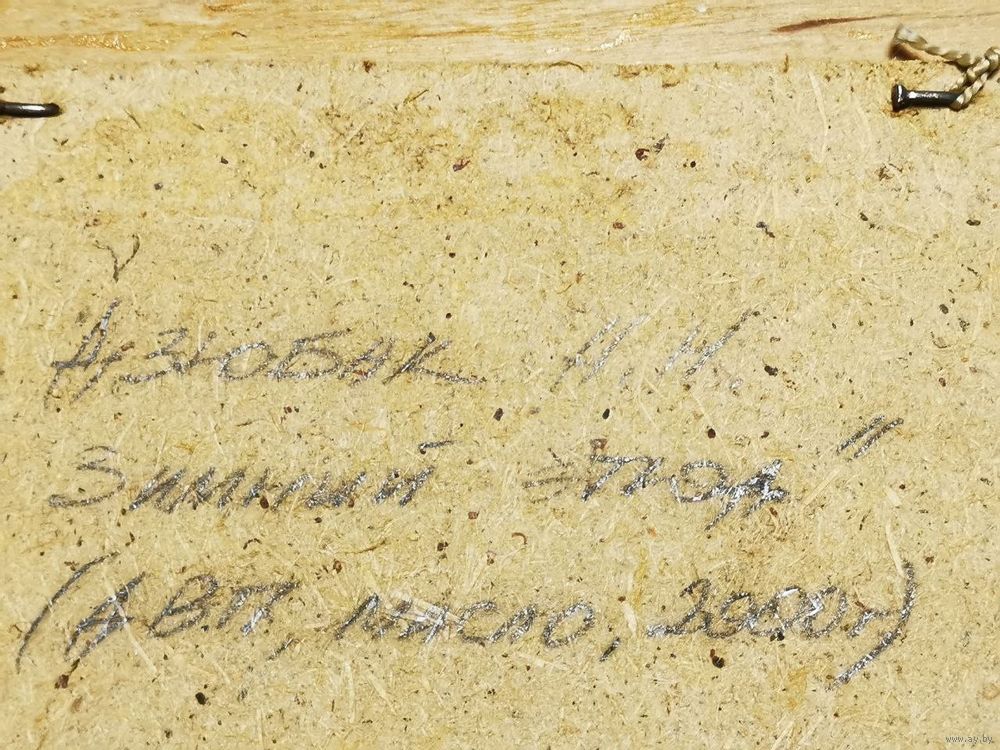 Дзюбак А.И.
Зимний этюд"
(ДВП, масло, 2000г)
www.ay.by